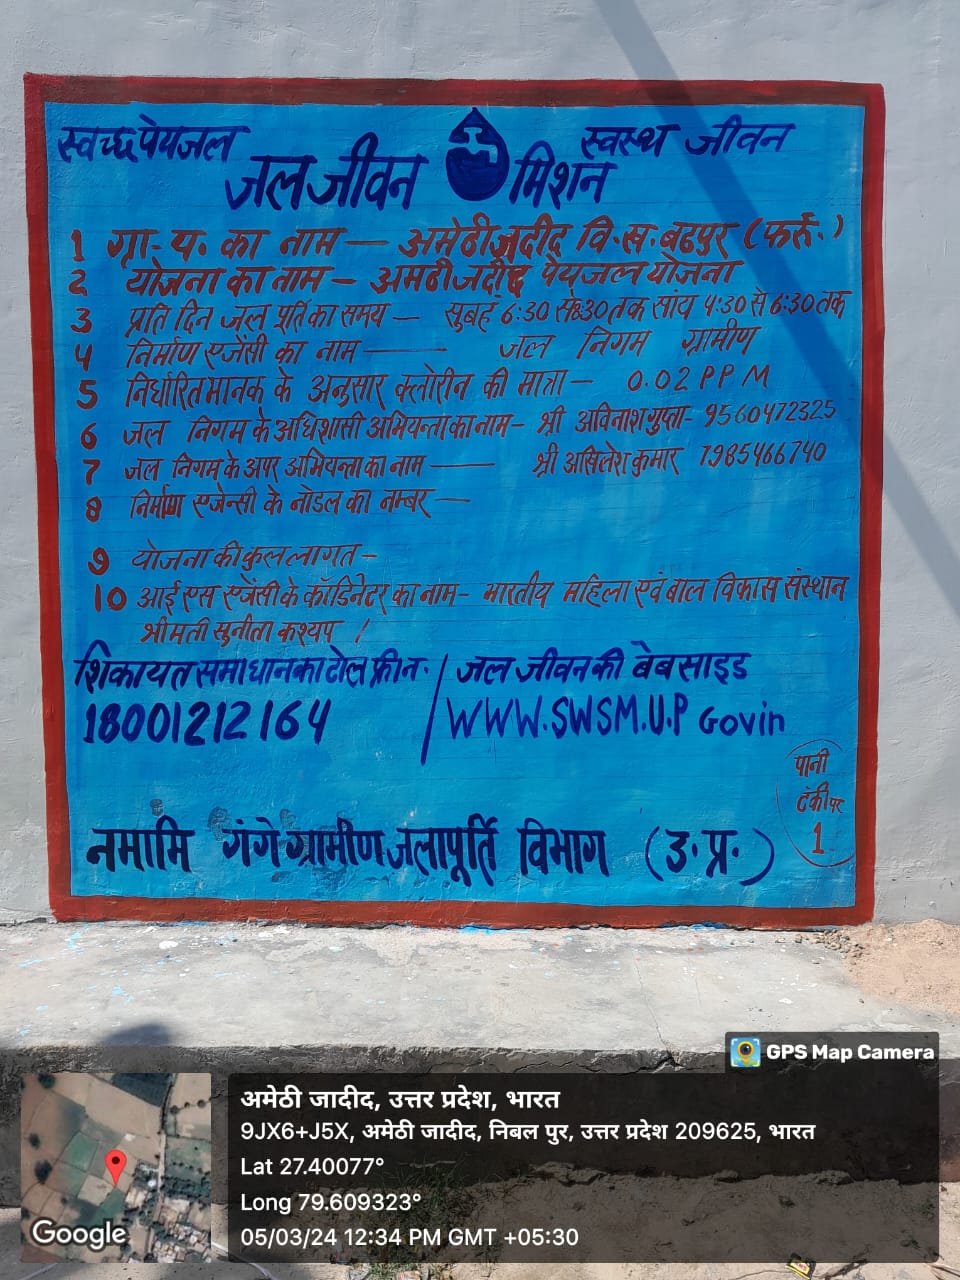 स्वच्छ पेयजल
स्वस्थ जीवन
जल जीवन मिशन
1 ग्रा-प. का नाम — अमेठी जदीद वि.ख. बढपुर (फर्रु.)
2 योजना का नाम - अमठी जदीद पेयजल योजना
3 प्रति दिन जल पूर्ति का समय — सुबह 6:30 से 8:30 तक सांय 4:30 से 6:30 तक
4 निर्माण एजेंसी का नाम — जल निगम ग्रामीण
5 निर्धारित मानक के अनुसार क्लोरीन की मात्रा — 0.02 PPM
6 जल निगम के अधिशासी अभियन्ता का नाम - श्री अविनाश गुप्ता - 9560472325
7 जल निगम के अपर अभियन्ता का नाम — श्री अखिलेश कुमार 7985466740
8 निर्माण एजेन्सी के नोडल का नम्बर —
9 योजना की कुल लागत -
10 आई एस एजेंसी के कॉडिनेटर का नाम - भारतीय महिला एवं बाल विकास संस्थान
श्रीमती सुनीता कश्यप /
शिकायत समाधान का टोल फ्री न. / जल जीवन की वेबसाइड
18001212164 / WWW.SWSM.U.P Govin
पानी
टंकी पर
1
नमामि गंगे ग्रामीण जलापूर्ति विभाग (उ.प्र.)
GPS Map Camera
अमेठी जादीद, उत्तर प्रदेश, भारत
9JX6+J5X, अमेठी जादीद, निबल पुर, उत्तर प्रदेश 209625, भारत
Lat 27.40077°
Long 79.609323°
05/03/24 12:34 PM GMT +05:30
Google